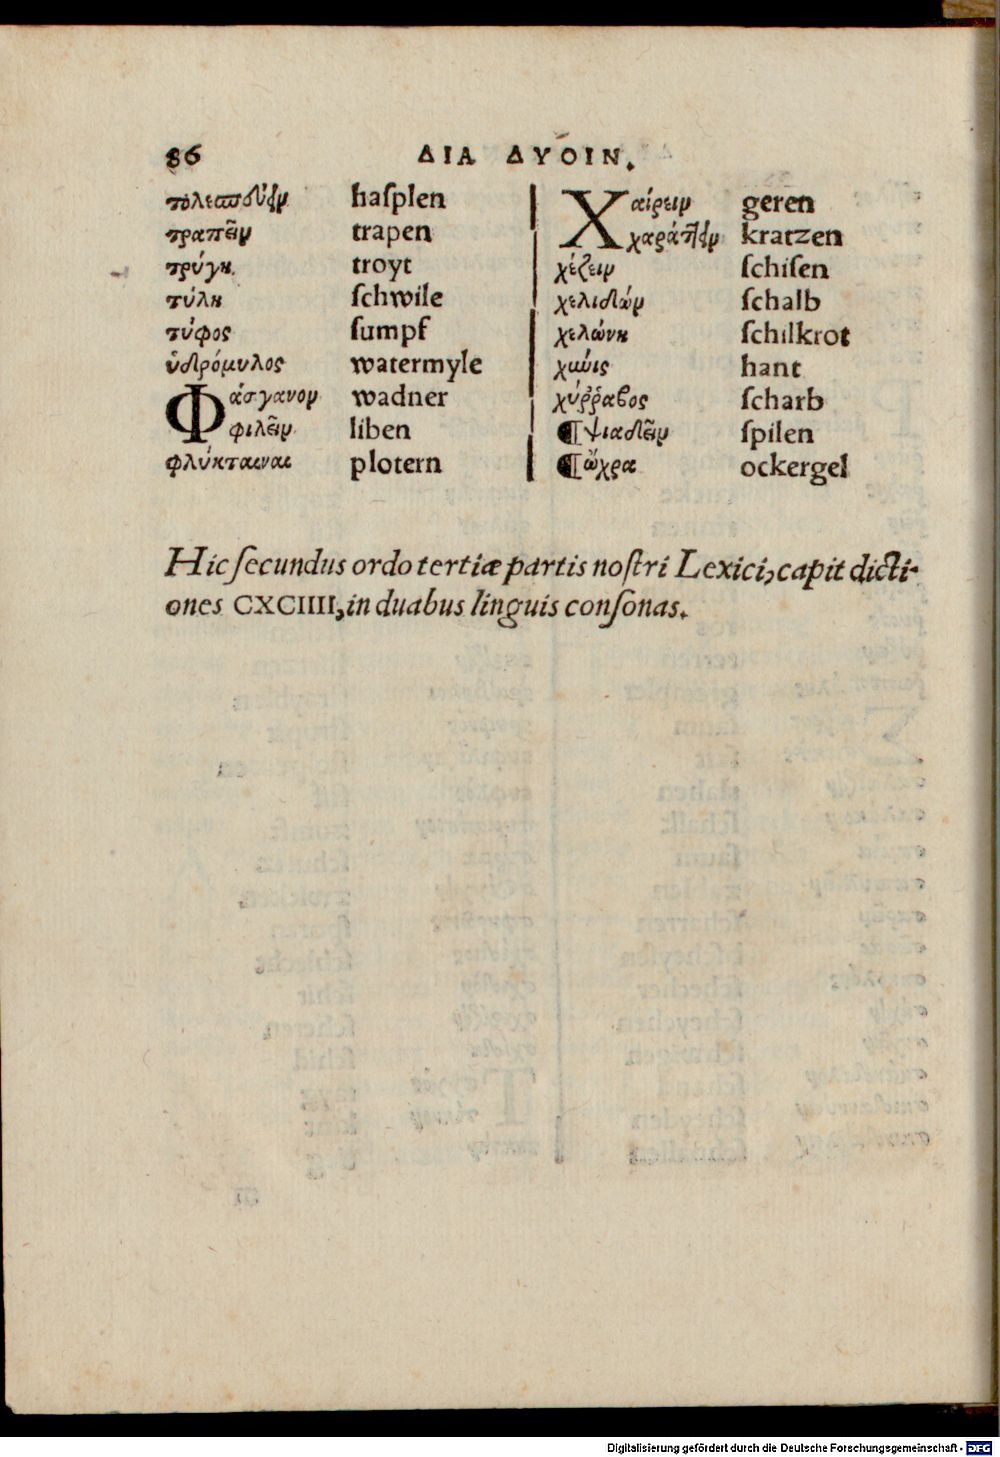 86 ΔΙΑ ΔΥΟΙΝ.
hasplen
τραπεῖν trapen
τρύγη troyt
τύλη ſchwile
τύφος ſumpf
ὑδρόμυλος watermyle
Φάσγανον wadner
φιλεῖν liben
φλύκταιναι plotern
Χαίρειν geren
χαράττειν kratzen
χέζειν ſchiſen
χελιδών ſchalb
χελώνη ſchilkrot
hant
ſcharb
¶ψιαδεῖν ſpilen
¶ὤχρα ockergel
Hic ſecundus ordo tertiæ partis noſtri Lexici, capit dicti-
ones CXCIIII, in duabus linguis conſonas.
Digitalisierung gefördert durch die Deutsche Forschungsgemeinschaft - DFG